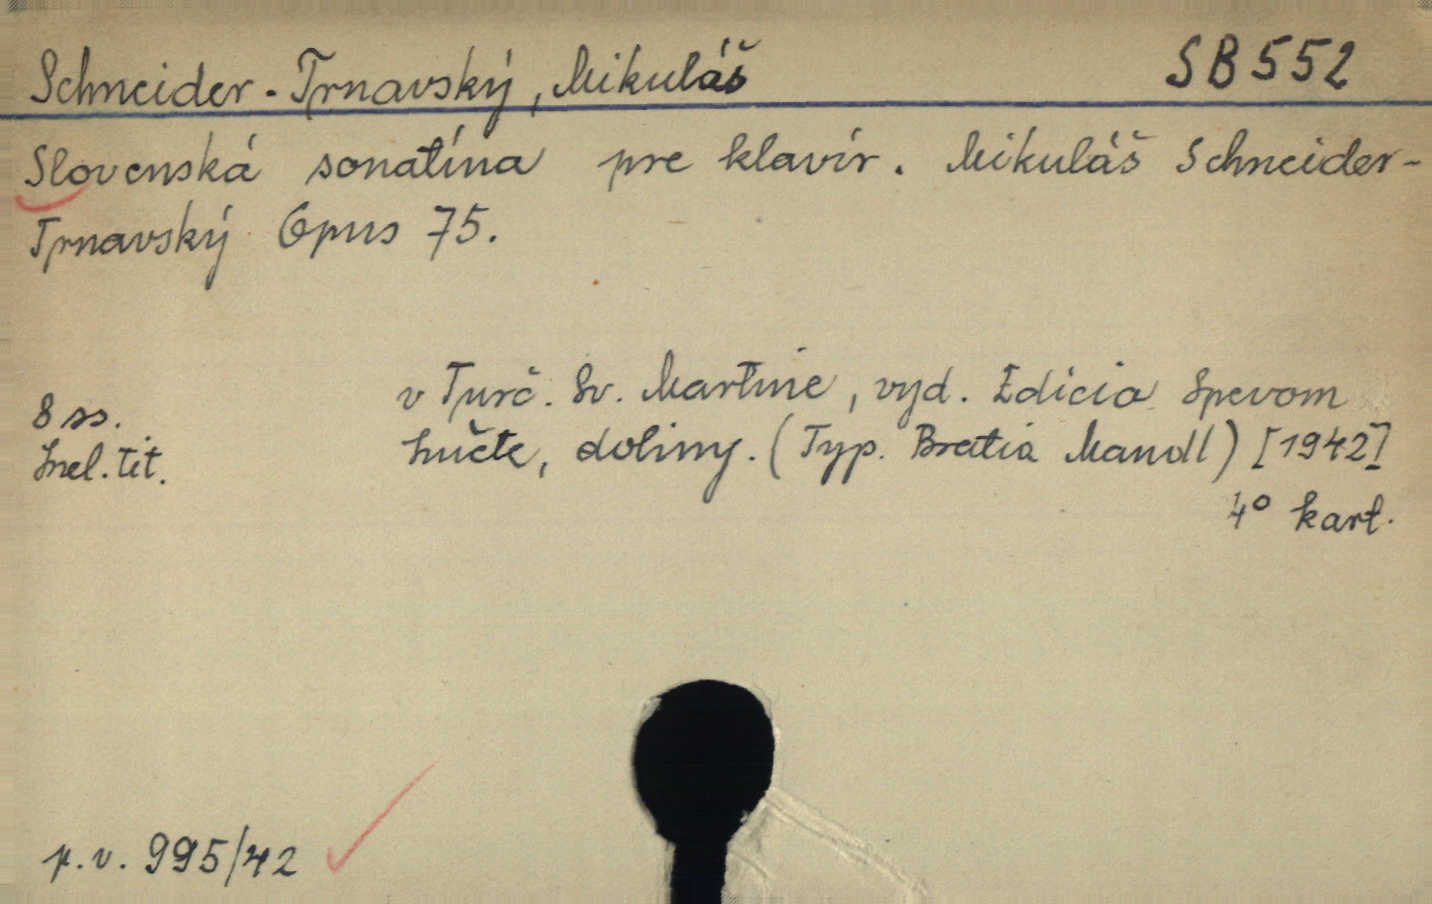 Schneider-Trnavský, Mikuláš SB 552
Slovenská sonatína pre klavír. Mikuláš Schneider-
Trnavský Opus 75.
v Turč. Sv. Martine, vyd. Edícia Spevom
8 ss.
hučte, doliny. (Typ. Bratia Mandl) [1942]
Inel. tit.
4° kart.
p.v. 995/42